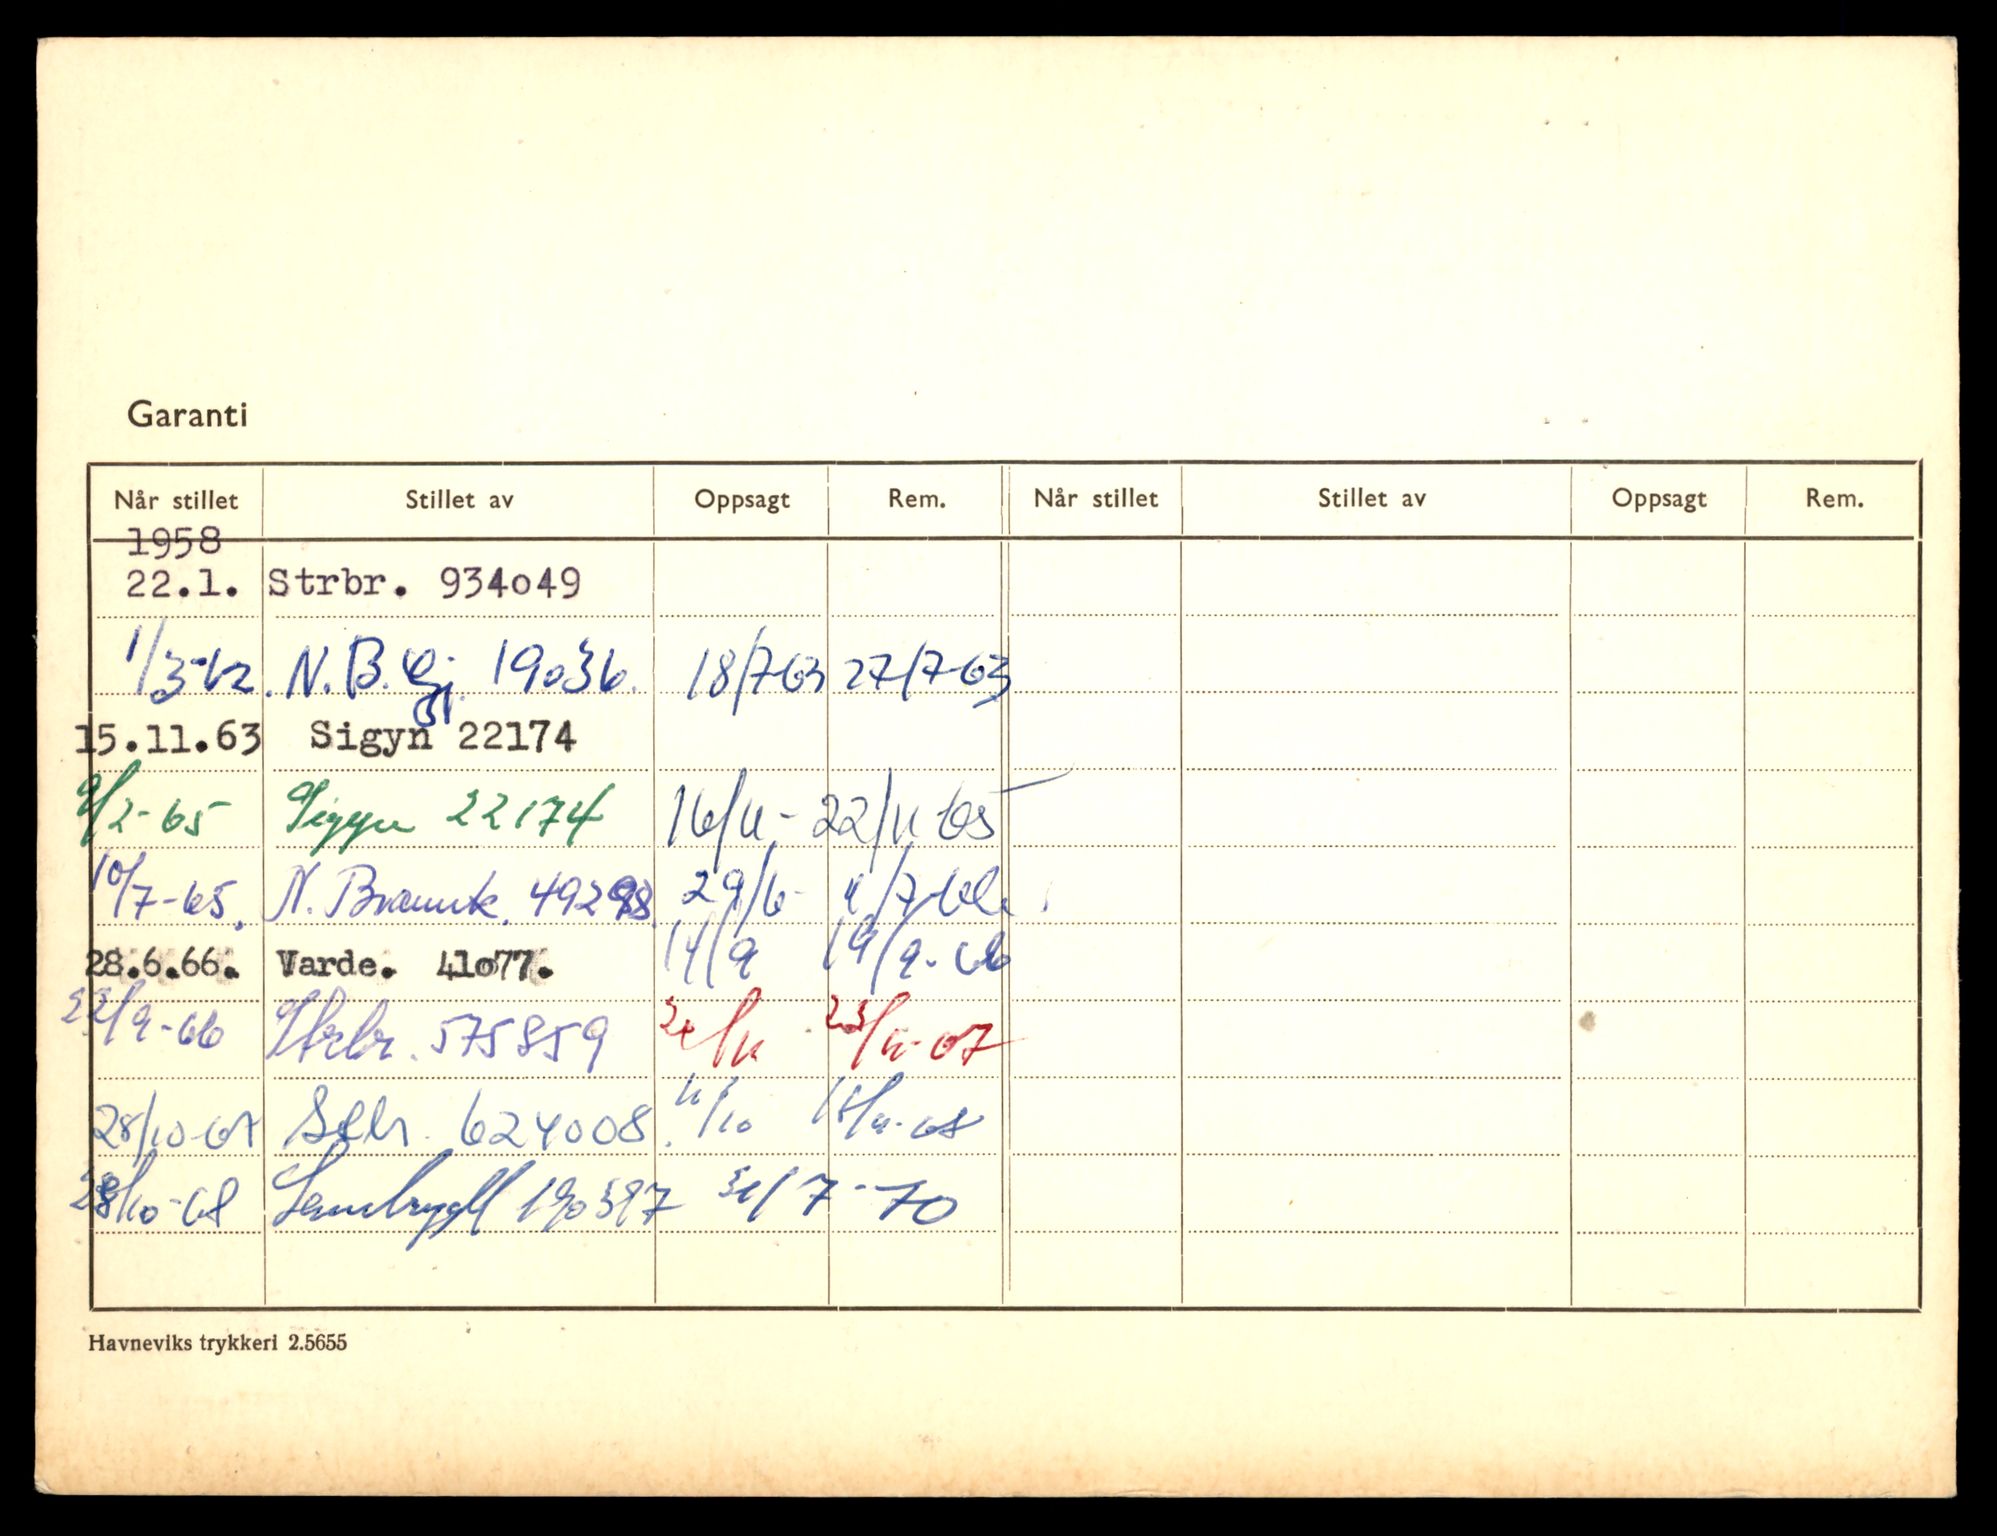 Garanti
Når stillet Stillet av Oppsagt Rem. Når stillet Stillet av Oppsagt Rem.
1958
22.1. Strbr. 934o49
1/3-62. N.B. Gj. 19036. 18/7-63 27/7-63
15.11.63 Sigyn 22174
9/2-65 Sigyn 22174 16/11- 22/11-65
10/7-65. N. Brannk. 49298 29/6- /7-66
28.6.66. Varde. 41o77. 14/9 19/9-66
22/9-66 Strbr. 575859 /11 23/11-67
28/10-67 Stbr. 624008. /10 15/11-68
28/10-68 Samtrygd 190397 31/7-70
Havneviks trykkeri 2.5655